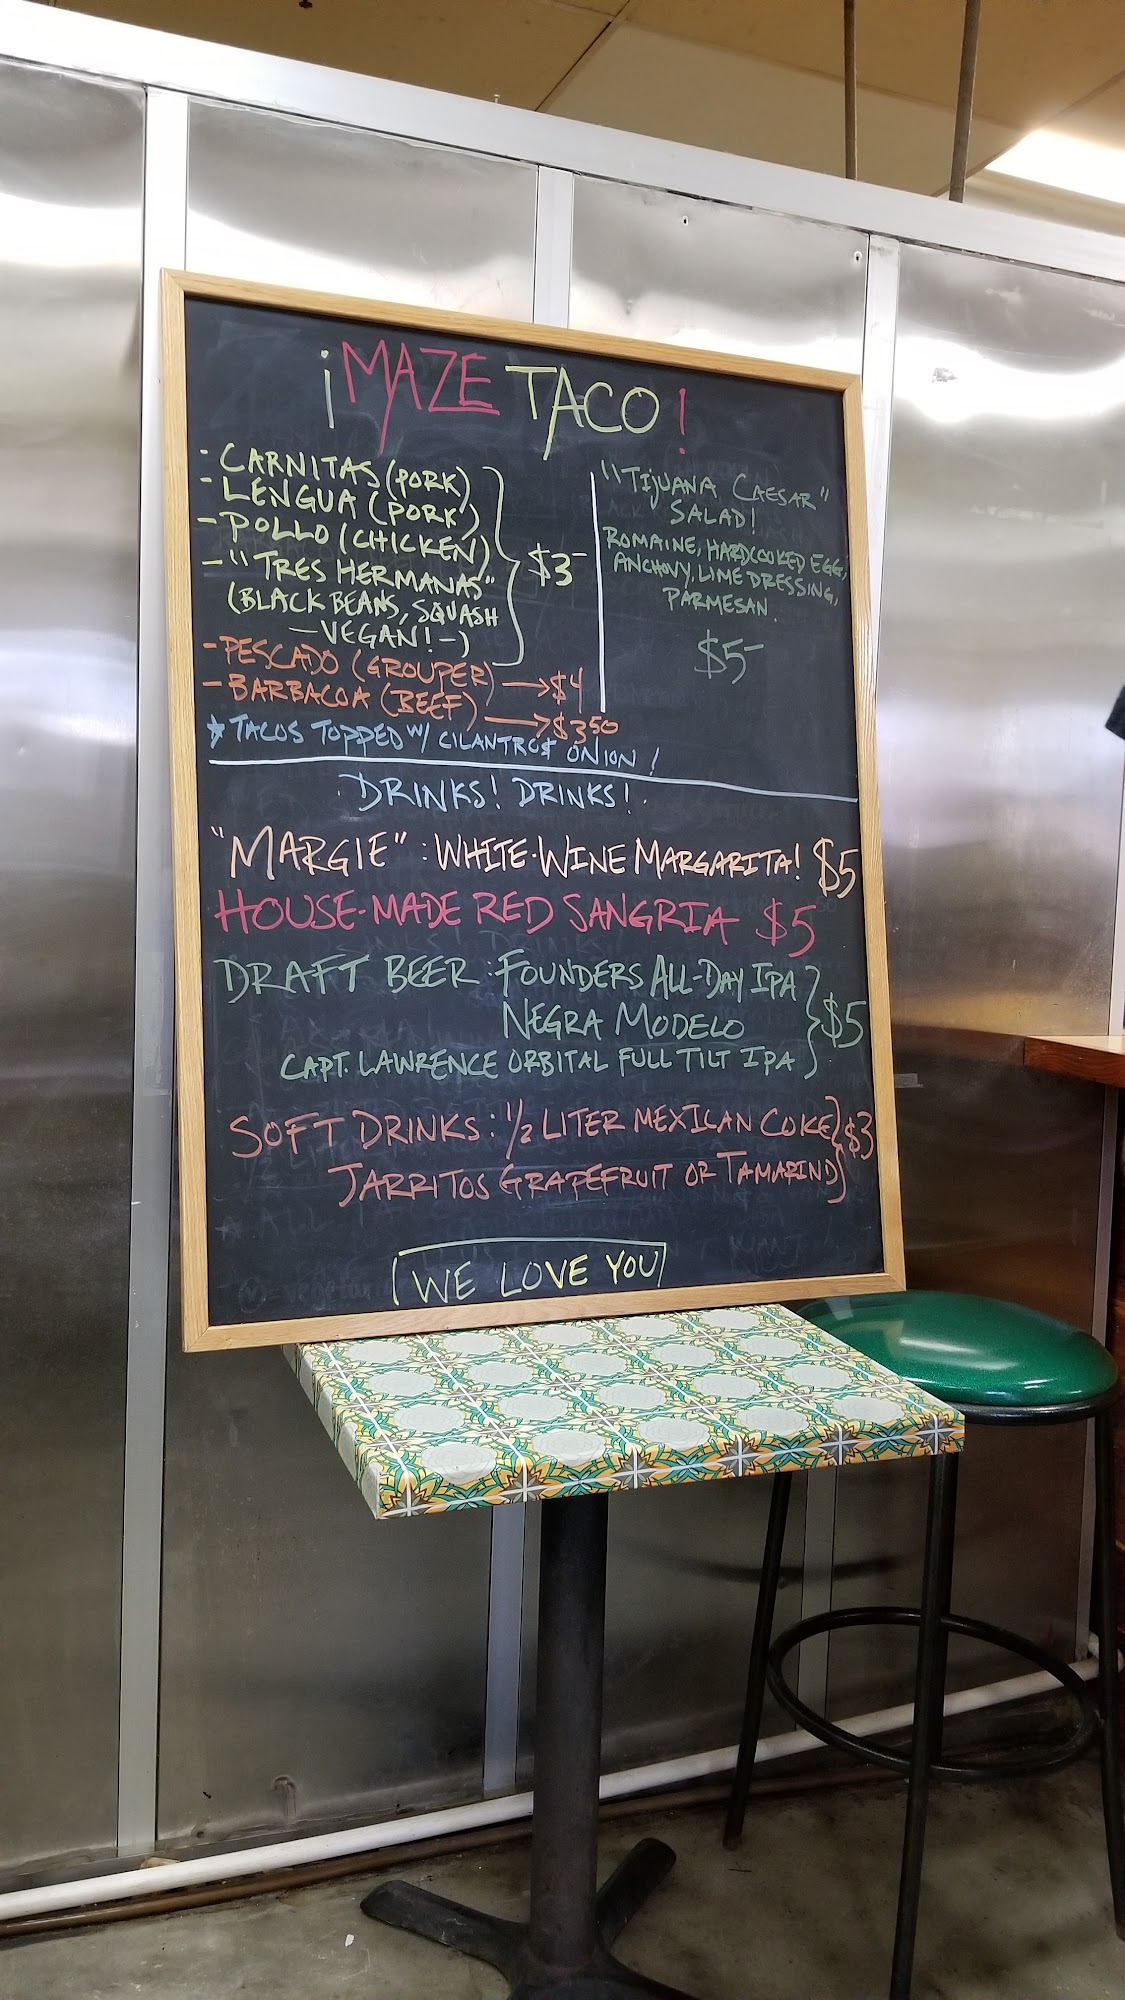 ¡MAZE TACO!
- CARNITAS (PORK)
- LENGUA (PORK)
- POLLO (CHICKEN)
- "TRES HERMANAS"
(BLACK BEANS, SQUASH
-VEGAN!-)
$3-
- PESCADO (GROUPER) → $4
- BARBACOA (BEEF) → $3.50
* TACOS TOPPED W/ CILANTRO & ONION!
"TIJUANA CAESAR"
SALAD!
ROMAINE, HARDCOOKED EGG,
ANCHOVY, LIME DRESSING,
PARMESAN.
$5-
DRINKS! DRINKS!
"MARGIE" : WHITE-WINE MARGARITA! $5
HOUSE-MADE RED SANGRIA $5
DRAFT BEER : FOUNDERS ALL-DAY IPA
NEGRA MODELO
CAPT. LAWRENCE ORBITAL FULL TILT IPA
$5
SOFT DRINKS : 1/2 LITER MEXICAN COKE
JARRITOS GRAPEFRUIT OR TAMARIND
$3
WE LOVE YOU